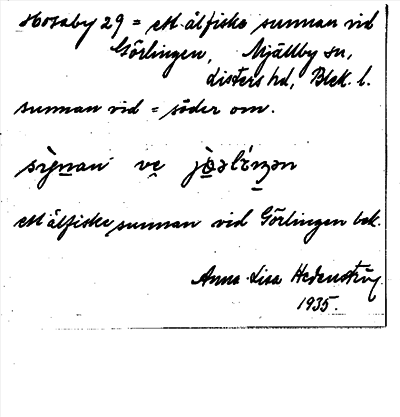 Hosaby 29 = ett ålfiske sunnan vid
Görlingen, Mjällby sn,
Listers hd, Blek. l.
sunnan vid = söder om.
ett ålfiske sunnan vid Görlingen bek.
Anna-Lisa Hedenström
1935.